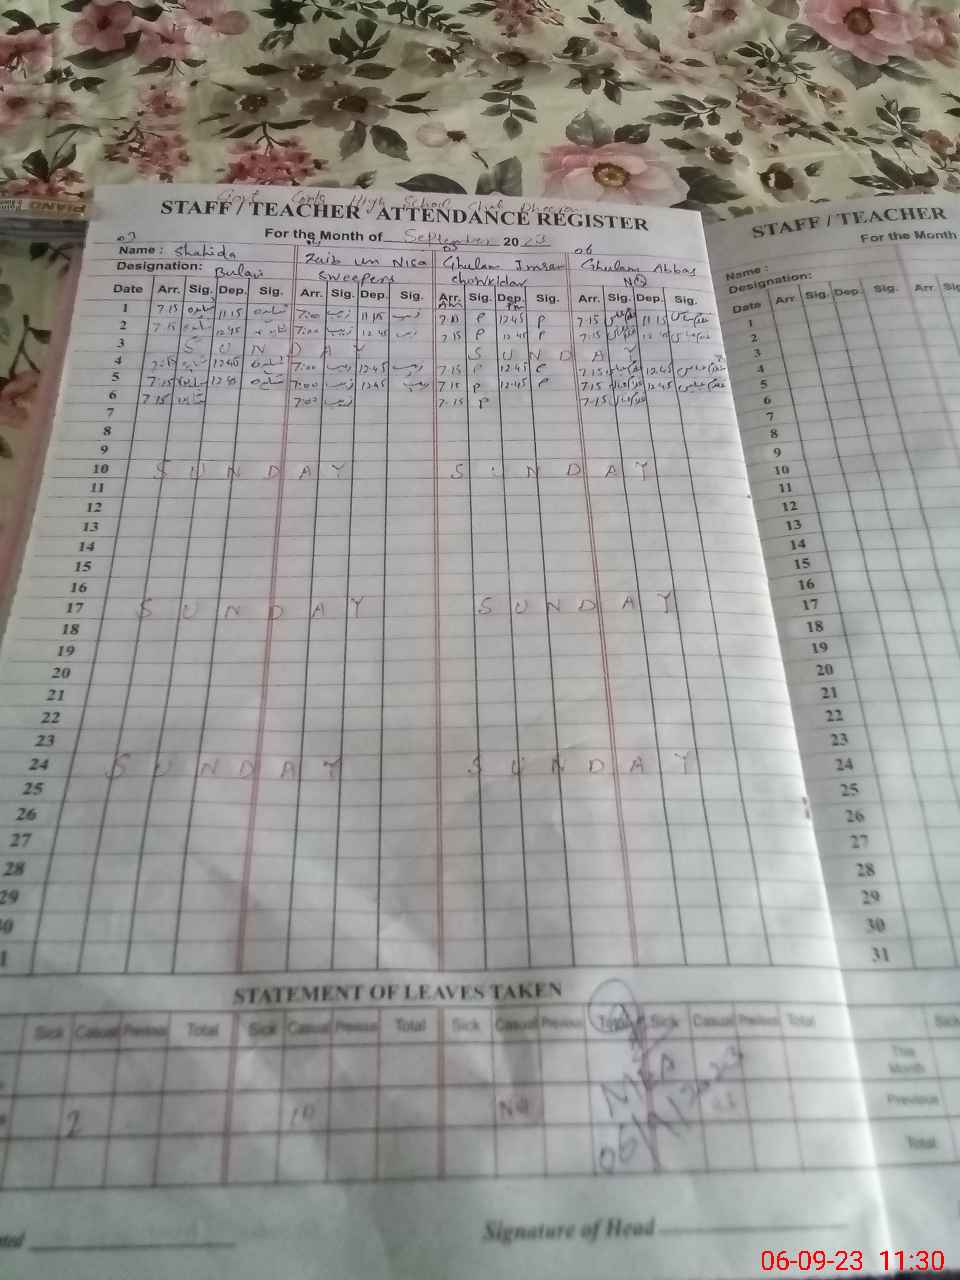 PIANO
Govt Girls High School Chak
STAFF / TEACHER ATTENDANCE REGISTER
For the Month of September 2023
03 05 06
Name : Shahida Zaib un Nisa Ghulam Imran Ghulam Abbas
Designation: sweepers chowkidar NQ
Date Arr. Sig. Dep. Sig. Arr. Sig. Dep. Sig. Arr. Sig. Dep. Sig. Arr. Sig. Dep. Sig.
1 7:15 شاہدہ 11:15 شاہدہ 7:00 زیب 11:15 زیب P 12:45 P 7:15 11:15
2 7:15 شاہدہ 12:45 7:00 زیب 12:45 زیب 7:15 P 12:45 P 7:15 12:45
3 SUNDAY SUNDAY
4 7:15 12:45 شاہدہ 7:00 زیب 12:45 زیب 7:15 P 12:45 P 7:15 12:45 غلام عباس
5 7:15 شاہدہ 12:45 شاہدہ 7:00 زیب 12:45 زیب 7:15 P 12:45 P 7:15 12:45 غلام عباس
6 7:15 شاہدہ 7:00 زیب 7:15 P 7:15
7
8
9
10 SUNDAY SUNDAY
11
12
13
14
15
16
17 SUNDAY SUNDAY
18
19
20
21
22
23
24 SUNDAY SUNDAY
25
26
27
28
29
30
31
STATEMENT OF LEAVES TAKEN
Sick Casual Previous Total Sick Casual Previous Total Sick Casual Previous Total Sick Casual Previous Total
2 10 Nil
06/9/2023
Signature of Head
STAFF / TEACHER
For the Month
Name :
Designation:
Date Arr. Sig. Dep. Sig. Arr. Sig.
1
2
3
4
5
6
7
8
9
10
11
12
13
14
15
16
17
18
19
20
21
22
23
24
25
26
27
28
29
30
31
Sick
This Month
Previous
Total
06-09-23 11:30